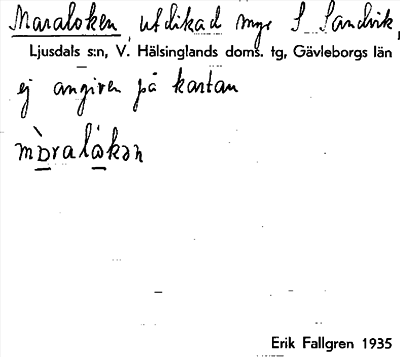 Maraloken, utdikad myr S Sandvik,
Ljusdals s:n, V. Hälsinglands doms. tg, Gävleborgs län
ej angiven på kartan
mɒ̀ralɷ́kən
Erik Fallgren 1935